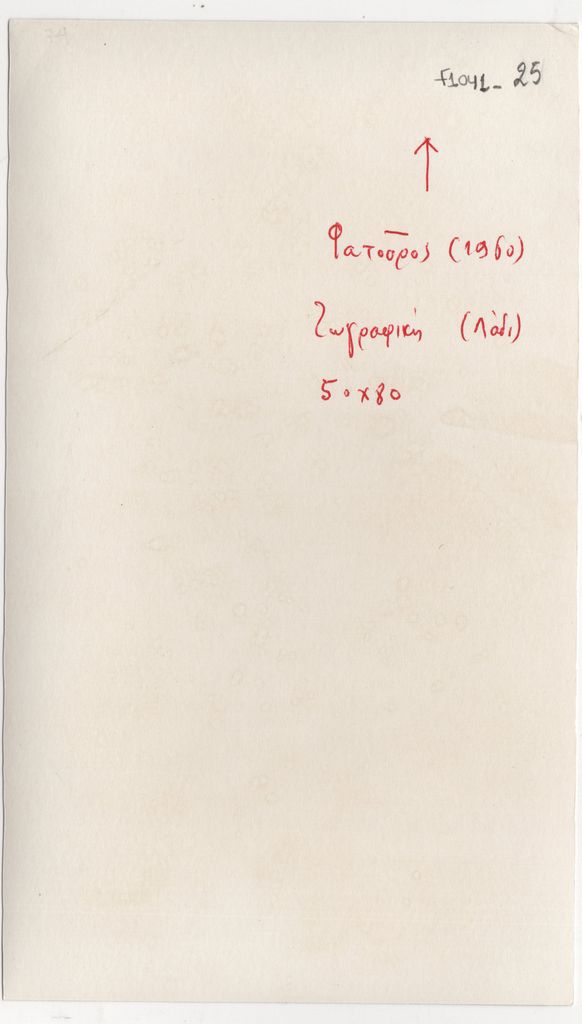 74
F1041- 25
Φατούρος (1960)
Ζωγραφική (Λάδι)
50x80